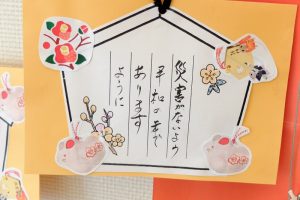 災害がないよう
平和な年で
ありますように